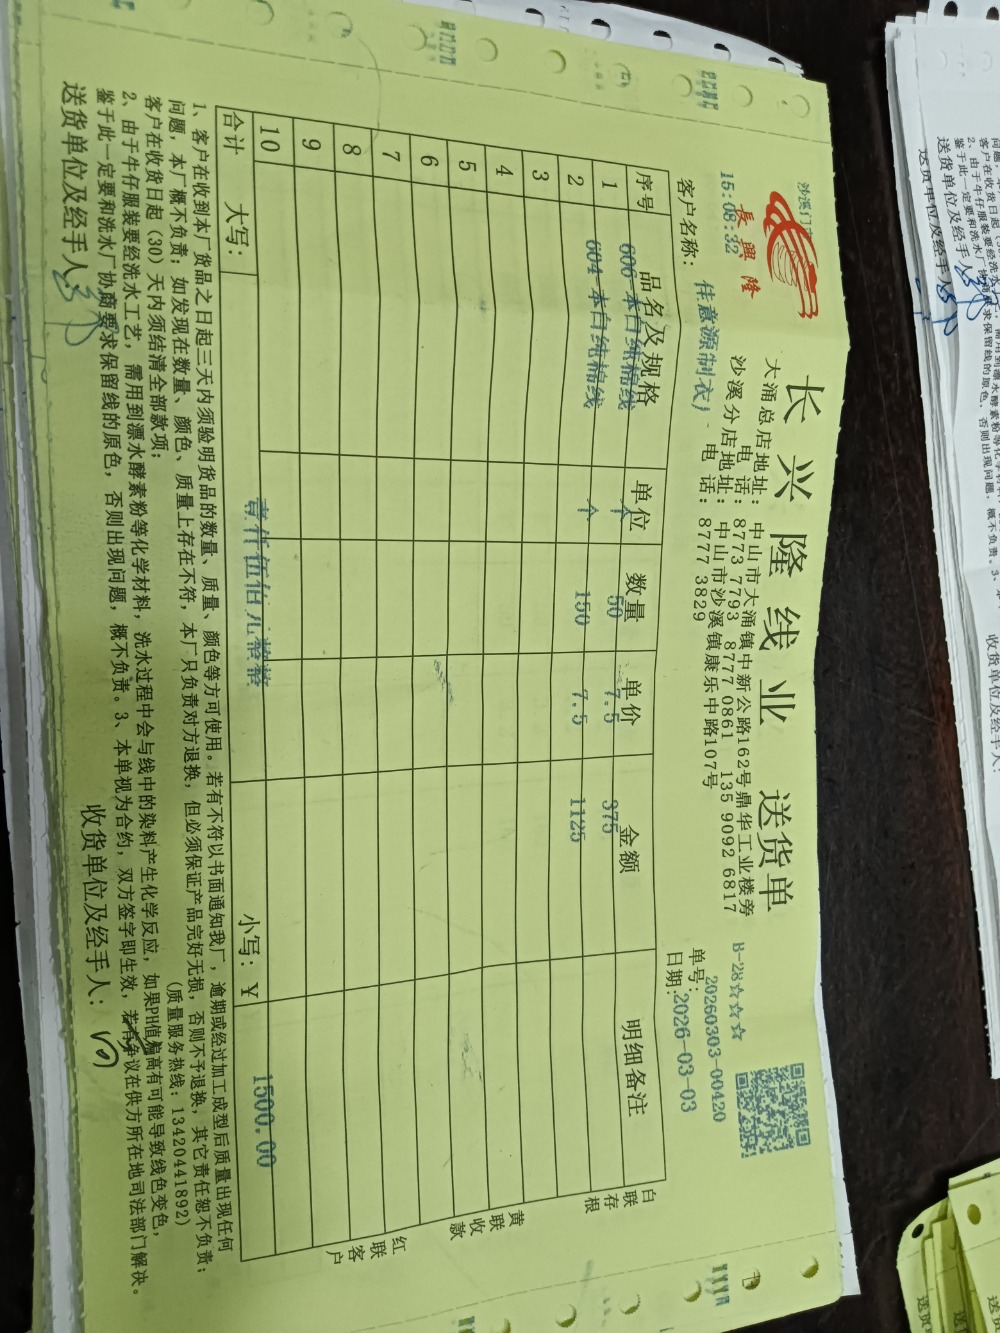 長興隆
15:08:32
长兴隆线业 送货单
大涌总店地址：中山市大涌镇中新公路162号鼎华工业楼旁
电话：8773 7793 8777 0861 135 9092 6817
沙溪分店地址：中山市沙溪镇康乐中路107号
电话：8777 3829
B-28☆☆☆
单号：20260303-00420
日期：2026-03-03
客户名称：佳意源制衣
序号 品名及规格 单位 数量 单价 金额 明细备注
1 606 本白纯棉线 个 50 7.5 375
2 604 本白纯棉线 个 150 7.5 1125
3
4
5
6
7
8
9
10
合计 大写：壹仟伍佰元整 小写：¥ 1500.00
白联存根
黄联收款
红联客户
1、客户在收到本厂货品之日起三天内须验明货品的数量、质量、颜色等方可使用。若有不符以书面通知我厂，逾期或经过加工成型后质量出现任何
问题，本厂概不负责；如发现在数量、颜色、质量上存在不符，本厂只负责对方退换，但必须保证产品完好无损，否则不予退换，其它责任恕不负责；
客户在收货日起（30）天内须结清全部款项； （质量服务热线：13420441892）
2、由于牛仔服装要经洗水工艺，需用到漂水酵素粉等化学材料，洗水过程中会与线中的染料产生化学反应，如果PH值偏高有可能导致线色变色，
鉴于此一定要和洗水厂协商要求保留线的原色，否则出现问题，概不负责。3、本单视为合约，双方签字即生效，若有争议在供方所在地司法部门解决。
送货单位及经手人： 收货单位及经手人：
送货单位及经手人
收货单位及经手人：